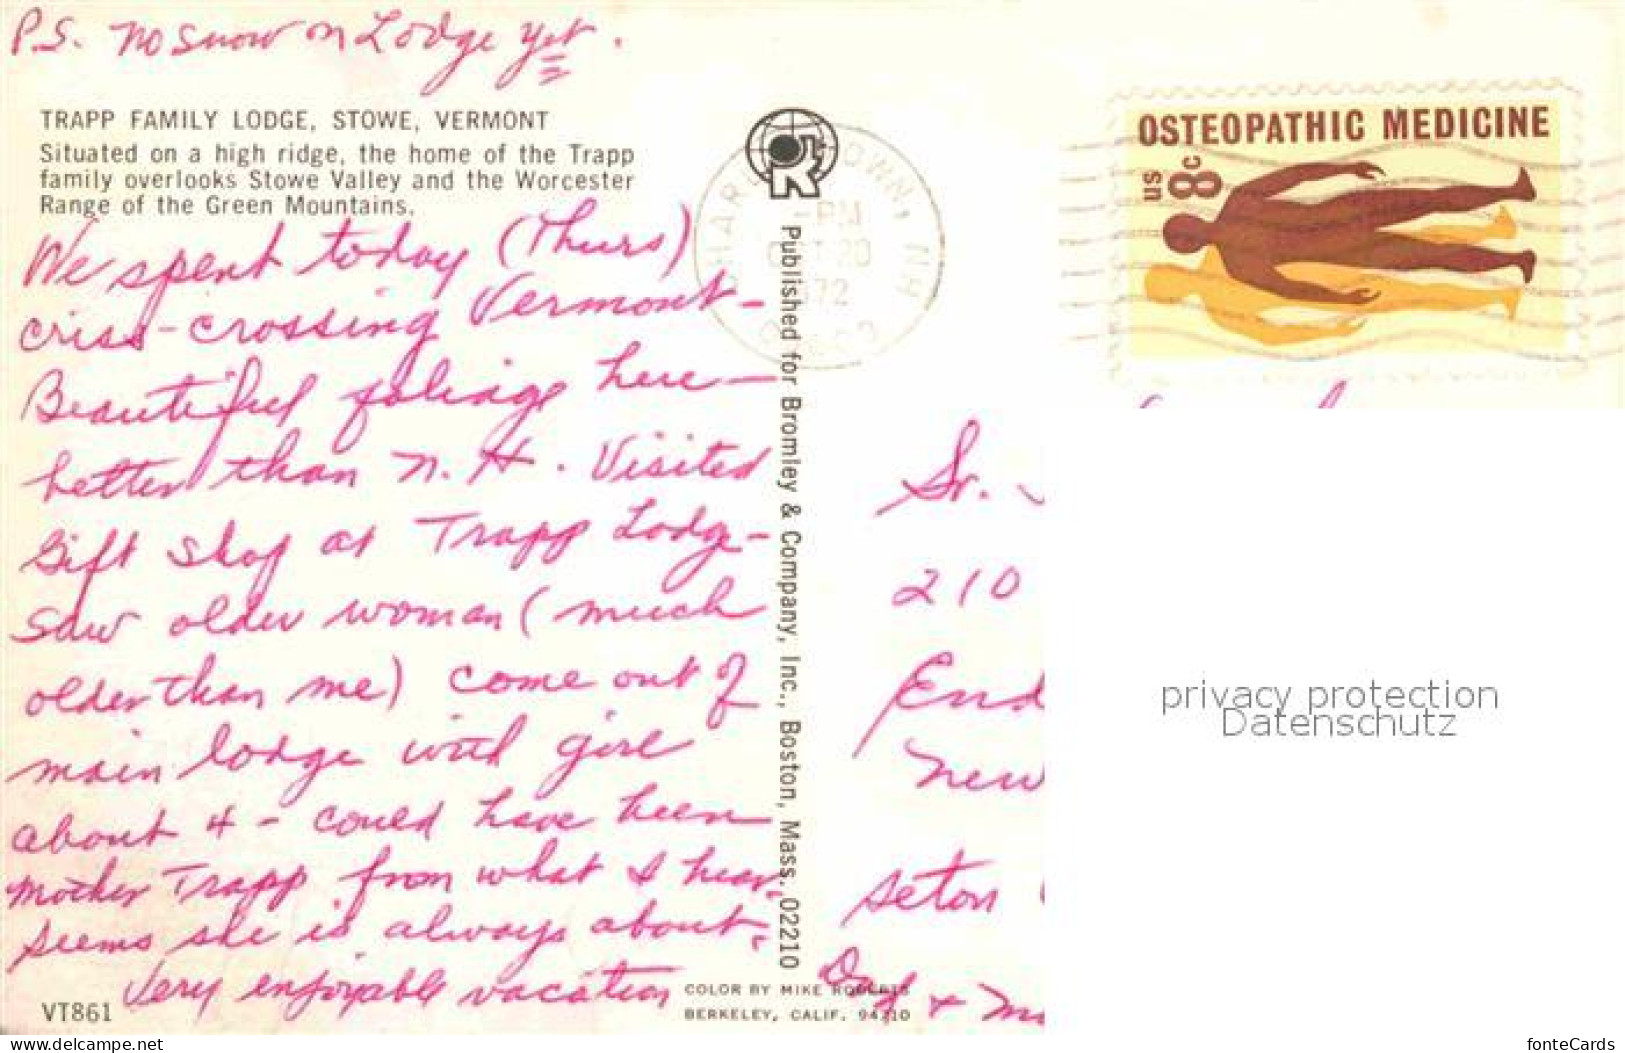 P.S. No snow on Lodge yet.
TRAPP FAMILY LODGE, STOWE, VERMONT
Situated on a high ridge, the home of the Trapp
family overlooks Stowe Valley and the Worcester
Range of the Green Mountains.
We spent today (Thurs)
criss-crossing Vermont-
Beautiful foliage here—
better than N.H. Visited
Gift Shop at Trapp Lodge-
Saw older woman (much
older than me) come out of
main lodge with girl
about 4 - could have been
Mother Trapp from what I hear-
seems she is always about.
Very enjoyable vacation
VT861
COLOR BY MIKE ROBERTS
BERKELEY, CALIF. 94710
Published for Bromley & Company, Inc., Boston, Mass. 02210
PM
72
OSTEOPATHIC MEDICINE
US 8c
Sr.
210
End
New
Seton
& M
privacy protection
Datenschutz
www.delcampe.net
fonteCards